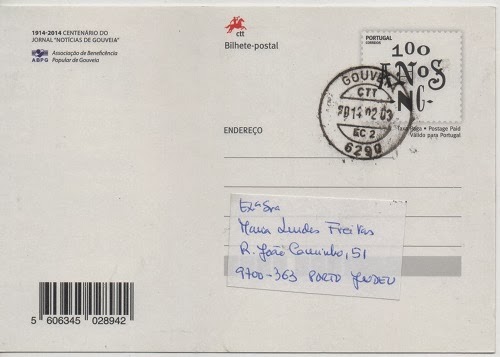 1914-2014 CENTENÁRIO DO
JORNAL "NOTÍCIAS DE GOUVEIA"
ABPG
Associação de Beneficência
Popular de Gouveia
ctt
Bilhete-postal
PORTUGAL
CORREIOS
100
ANOS
NG-
GOUVEIA
CTT
2014-02-03
EC 2
6290
Taxa Paga • Postage Paid
Válido para Portugal
ENDEREÇO
Exª Sra
Maria Lurdes Freitas
R. João Caminho, 51
9700-363 PORTO JUDEU
5 606345 028942